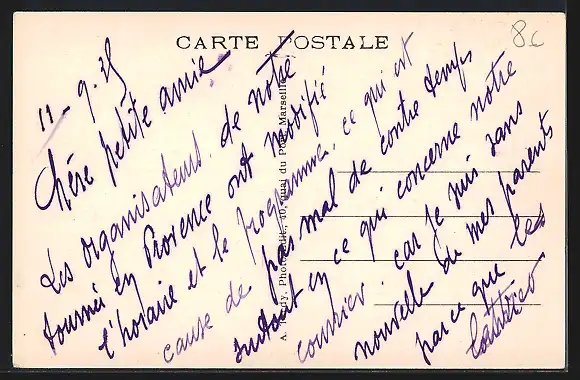 8c
CARTE POSTALE
11-9.35
Chère petite amie
Les organisateurs de notre
tournée en Provence ont modifié
l'horaire et le programme, ce qui est
cause de pas mal de contre temps
surtout en ce qui concerne notre
courrier. car je suis sans
nouvelle de mes parents
parce que les
lettres
A. Photo-édit., 10, quai du Port, Marseille